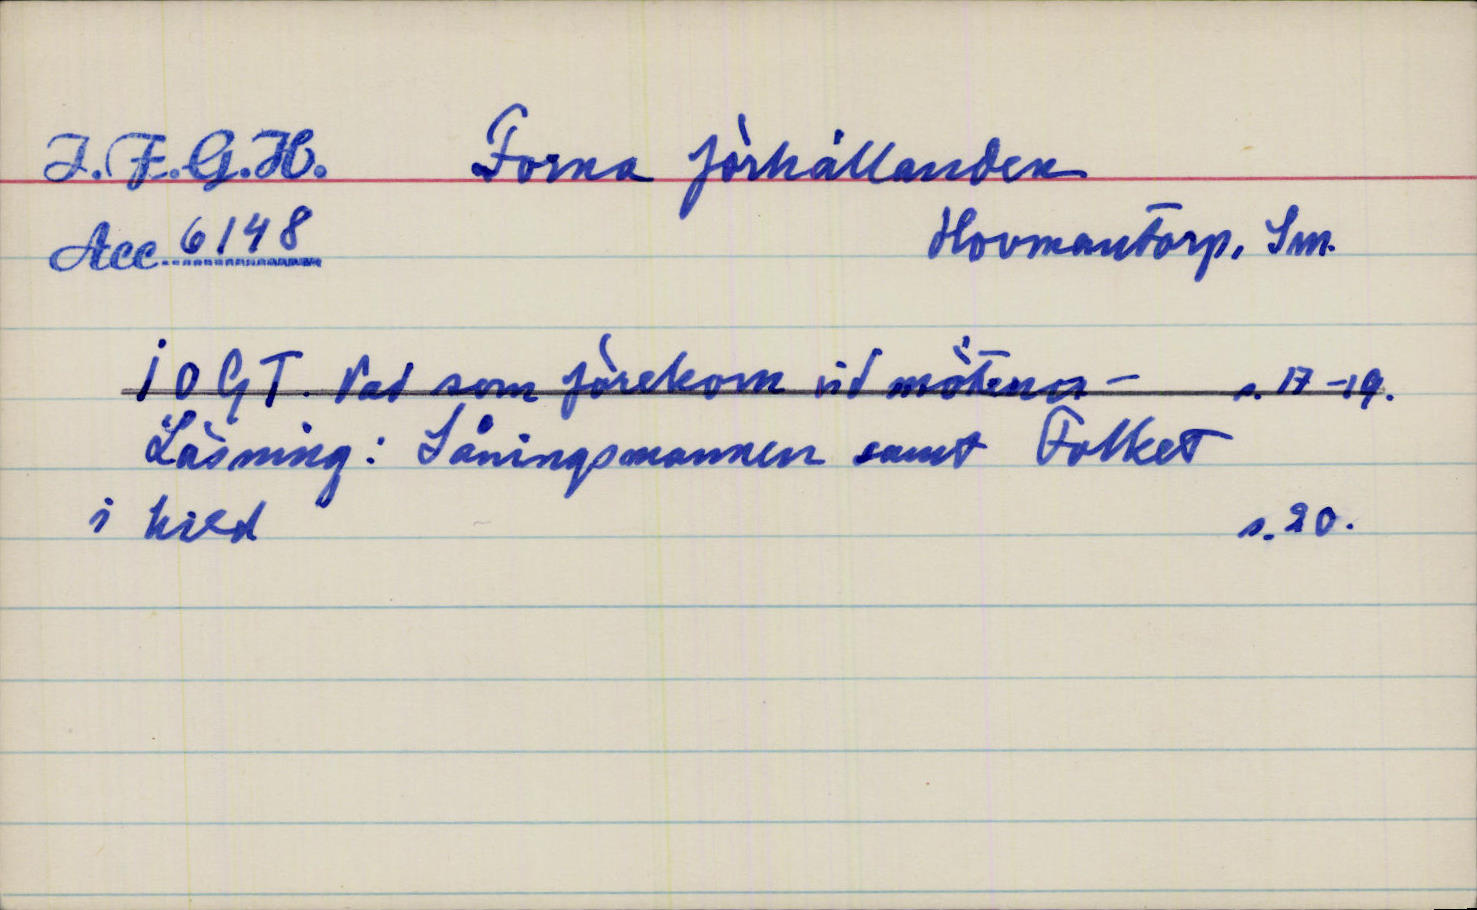 I.F.G.H. Forna förhållanden
Acc. 6148 Hovmantorp, Sm.
IOGT. Vad som förekom vid mötena - s. 17-19.
Läsning: Såningsmannen samt Folket
i bild s. 20.